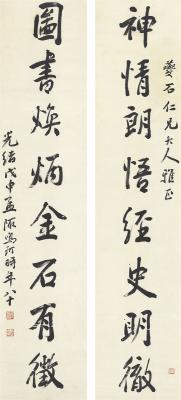 夔石仁兄大人雅正
神情朗悟經史明徹
圖書煥炳金石有徵
光緒戊申孟陬馮訶時年八十